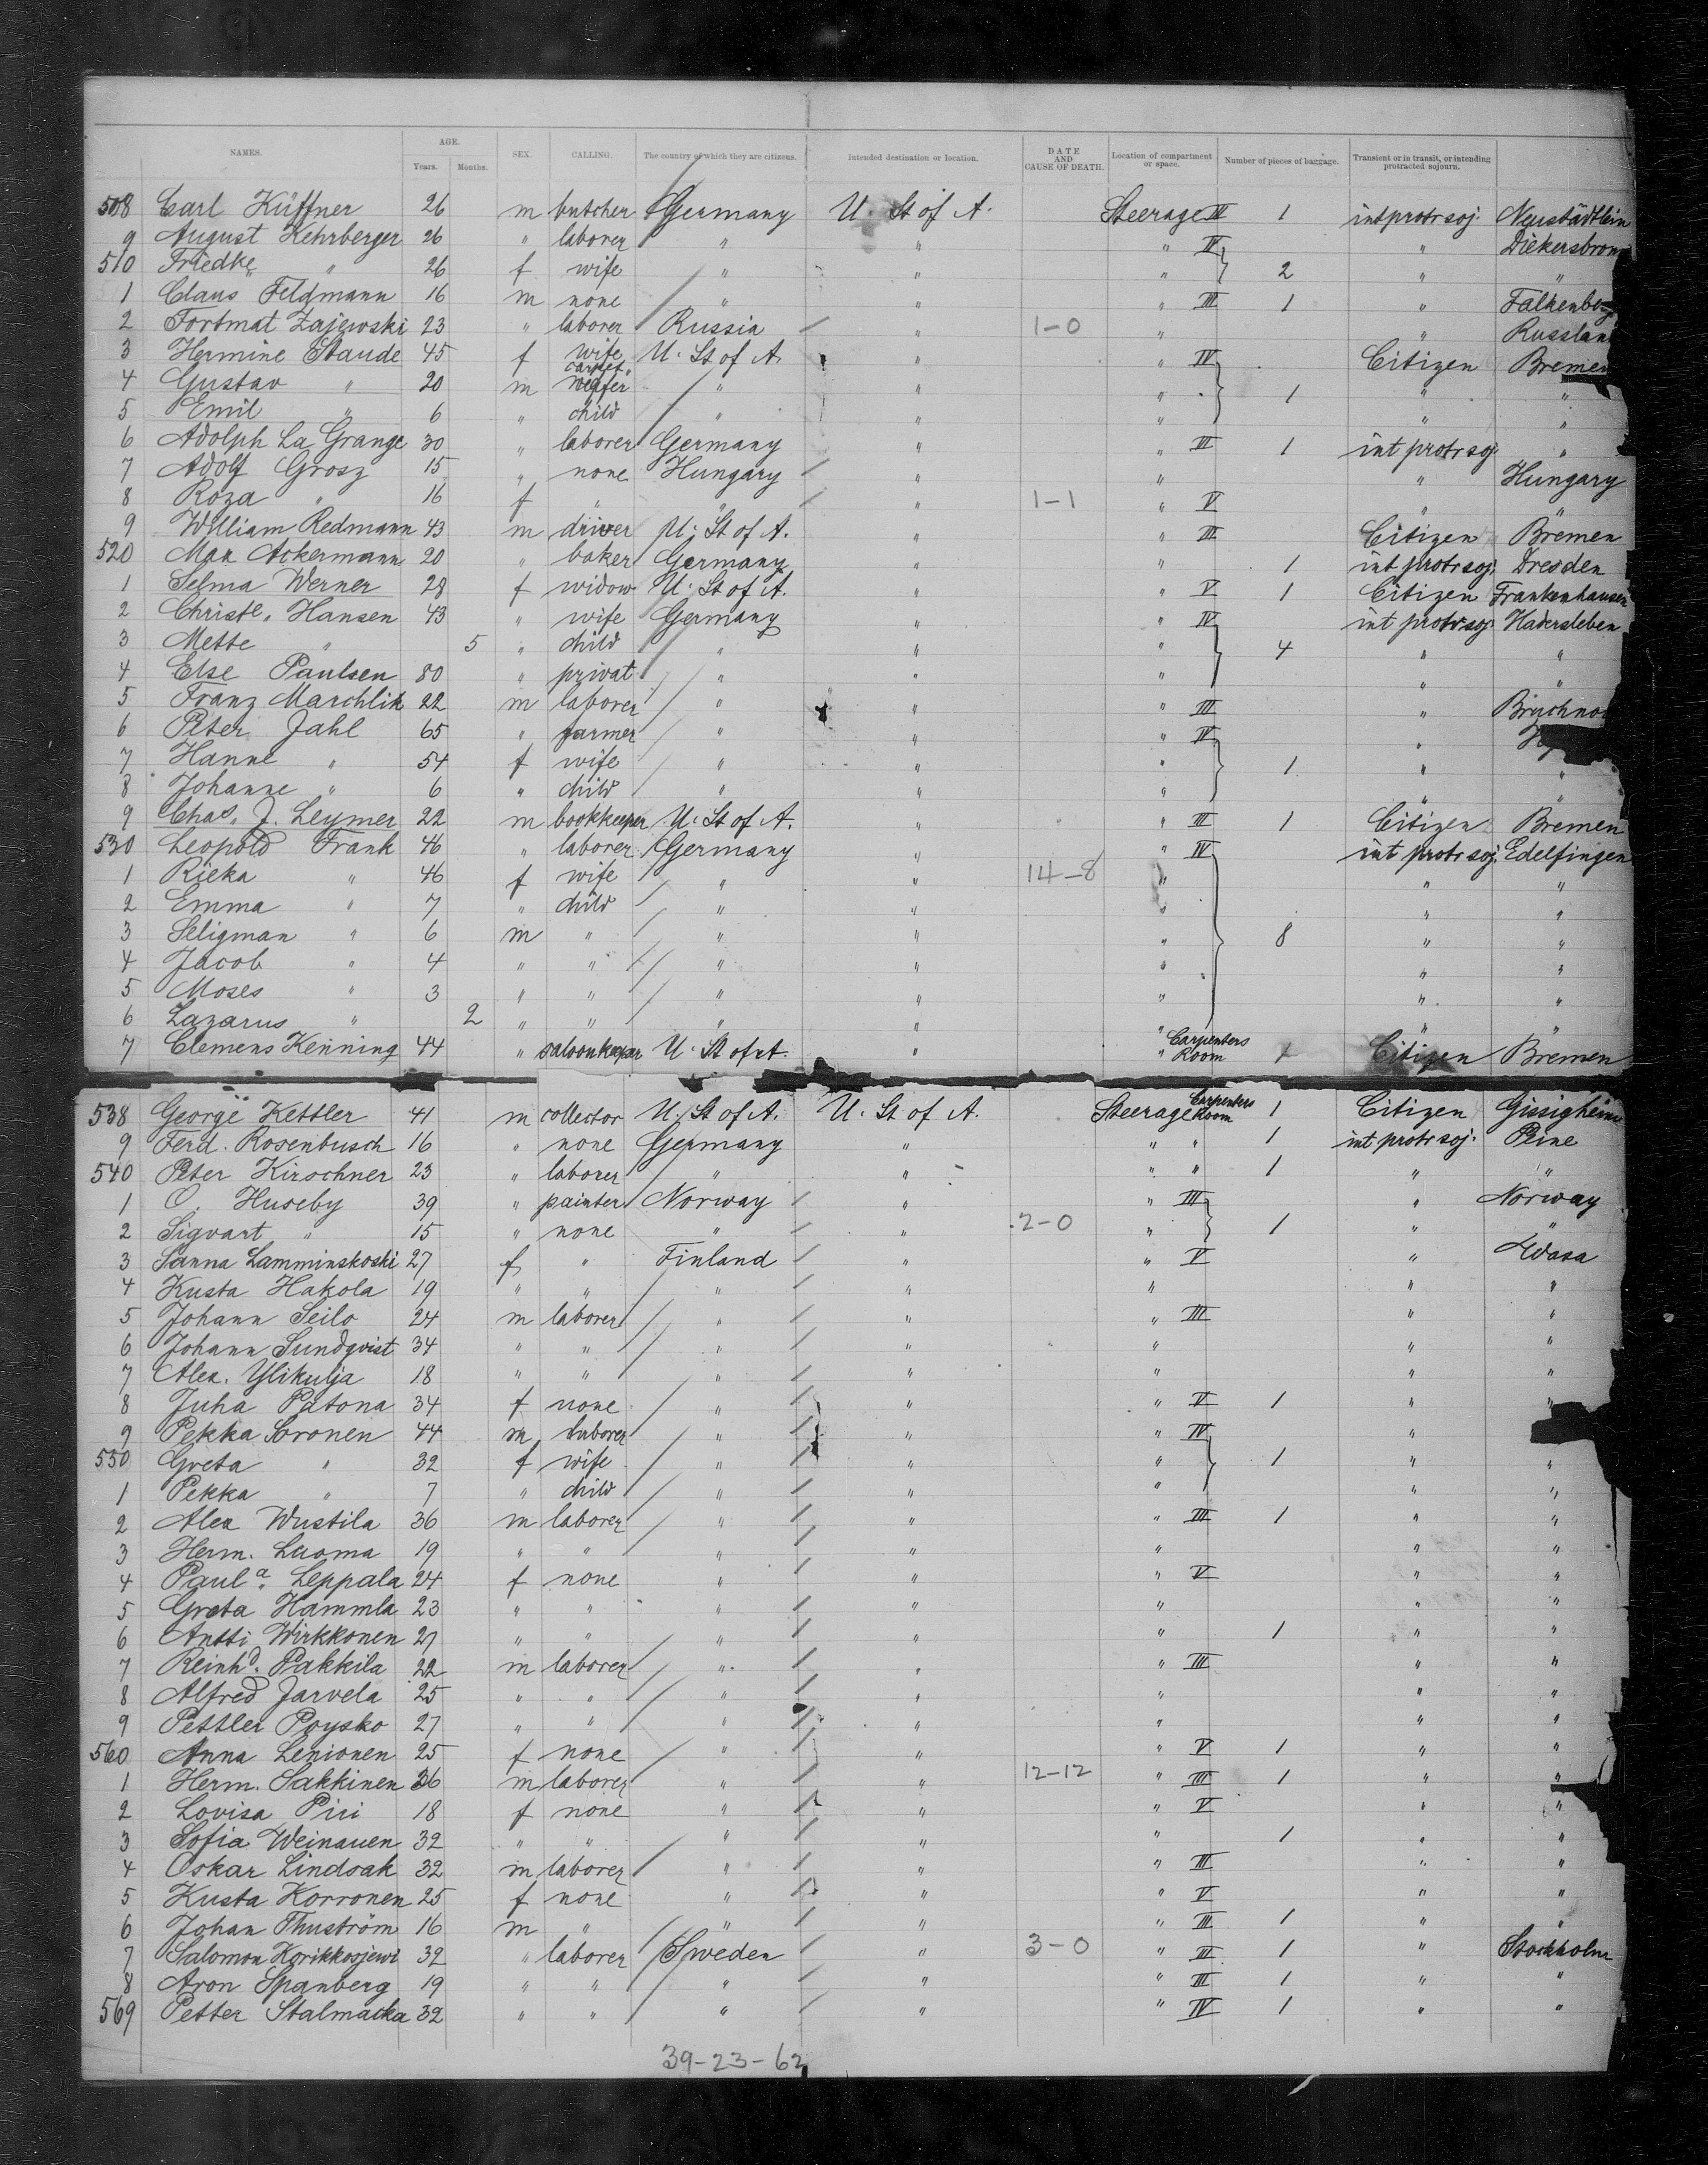 NAMES. AGE. Years. Months. SEX. CALLING. The country of which they are citizens. Intended destination or location. DATE AND CAUSE OF DEATH. Location of compartment or space. Number of pieces of baggage. Transient or in transit, or intending protracted sojourn.
508 Carl Küffner 26 m butcher Germany U. St of A. Steerage III 1 int protr soj. Neustädtlein
9 August Kehrberger 26 " laborer " " " IV " Diekersbronn
510 Friedke " 26 f wife " " " 2 " "
1 Claus Feldmann 16 m none " " " III 1 " Falkenberg
2 Fortmat Zajewski 23 " laborer Russia " 1-0 " " Russland
3 Hermine Staude 45 f wife U. St of A. " " IV Citizen Bremen
4 Gustav " 20 m carpet weafer " " " 1 " "
5 Emil " 6 " child " " " " "
6 Adolph La Grange 30 " laborer Germany " " III 1 int protr soj "
7 Adolf Grosz 15 " none Hungary " " " Hungary
8 Roza " 16 f " " " 1-1 " V " "
9 William Redmann 43 m driver U. St of A. " " III Citizen Bremen
520 Max Ackermann 20 " baker Germany " " 1 int protr soj. Dresden
1 Selma Werner 28 f widow U. St of A. " " V 1 Citizen Frankenhausen
2 Christe. Hansen 43 " wife Germany " " IV int protr soj. Hadersleben
3 Mette " 5 " child " " " 4 " "
4 Else Paulsen 80 " privat " " " " "
5 Franz Marchlik 22 m laborer " " " III "
6 Peter Jahl 65 " farmer " " " IV "
7 Hanne " 54 f wife " " " 1 " "
8 Johanne " 6 " child " " " " "
9 Chas. J. Leymer 22 m bookkeeper U. St of A. " " III 1 Citizen Bremen
530 Leopold Frank 46 " laborer Germany " " IV int protr soj. Edelfingen
1 Rieka " 46 f wife " " 14-8 " " "
2 Emma " 7 " child " " " " "
3 Seligman " 6 m " " " " 8 " "
4 Jacob " 4 " " " " " " "
5 Moses " 3 " " " " " " "
6 Lazarus " 2 " " " " " " "
7 Clemens Kenning 44 " saloonkeeper U. St of A. " " Carpenters Room Citizen Bremen
538 George Kettler 41 m collector U. St of A. U. St of A. Steerage Carpenters Room 1 Citizen Gissigheim
9 Ferd. Rosenbusch 16 " none Germany " " " 1 int protr soj. Peine
540 Peter Kirschner 23 " laborer " " " " 1 " "
1 O. Huseby 39 " painter Norway " " III " Norway
2 Sigvart " 15 " none " " 2-0 " 1 " "
3 Sanna Lamminskoski 27 f " Finland " " V " Wasa
4 Kusta Hakola 19 " " " " " " "
5 Johann Seilo 24 m laborer " " " III " "
6 Johann Sundqvist 34 " " " " " " "
7 Alex. Ylikulja 18 " " " " " " "
8 Juha Patona 34 f none " " " V 1 " "
9 Pekka Soronen 44 m laborer " " " IV "
550 Greta " 32 f wife " " " 1 " "
1 Pekka " 7 " child " " " " "
2 Alex Wustila 36 m laborer " " " III 1 " "
3 Herm. Luoma 19 " " " " " " "
4 Paula. Leppala 24 f none " " " V " "
5 Greta Hammla 23 " " " " " " "
6 Antti Wirkkonen 21 " " " " " 1 " "
7 Reinhd. Pakkila 22 m laborer " " " III " "
8 Alfred Jarvela 25 " " " " " " "
9 Pettler Poysko 27 " " " " " " "
560 Anna Lenionen 25 f none " " " V 1 " "
1 Herm. Sakkinen 36 m laborer " " 12-12 " III 1 " "
2 Lovisa Piri 18 f none " " " V " "
3 Sofia Weinauen 32 " " " " " 1 " "
4 Oskar Lindsak 32 m laborer " " " III " "
5 Kusta Korronen 25 f none " " " V " "
6 Johan Thuström 16 m " " " " III 1 " "
7 Salomon Korikkosjewi 32 " laborer Sweden " 3-0 " III 1 " Stockholm
8 Aron Spanberg 19 " " " " " III 1 " "
569 Petter Stalmacka 32 " " " " " IV 1 " "
39-23-62